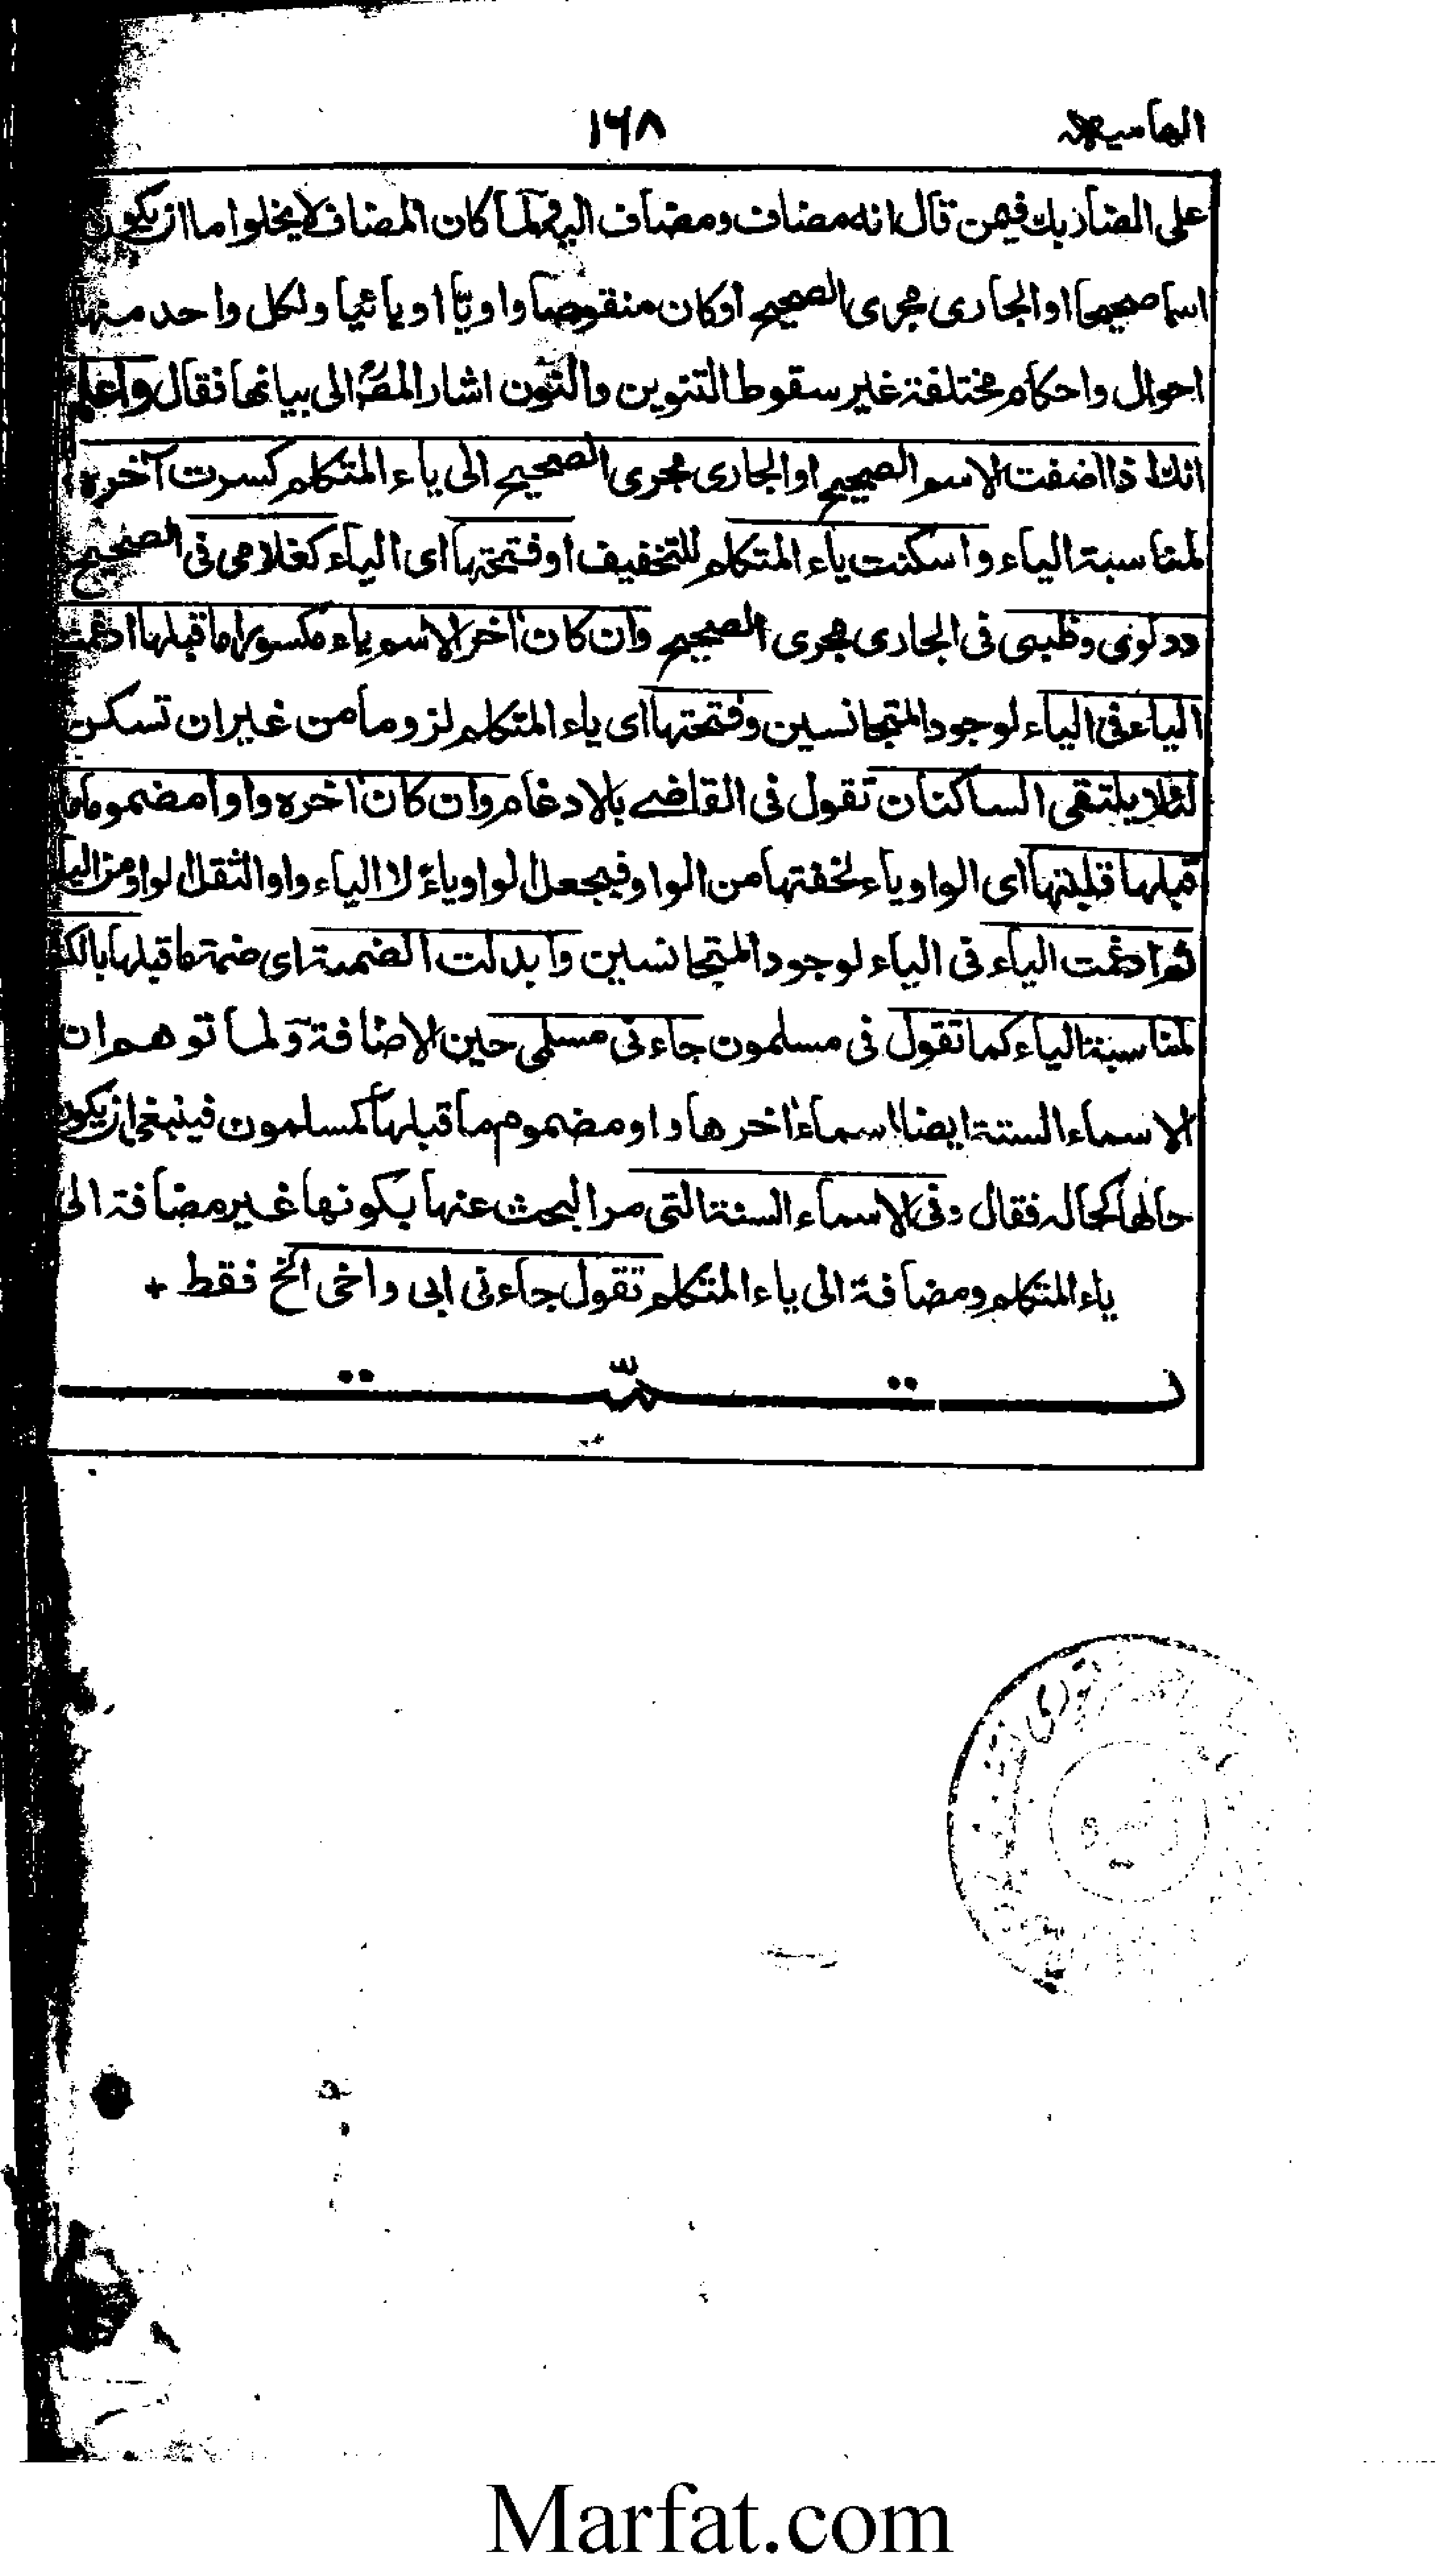 الهاميه ١٦٨
على الضاربك فيمن قال انه مضاف ومضاف اليه ولما كان المضاف لا يخلوا ما ان يكون
اسما صحيحا او الجارى مجرى الصحيح او كان منقوصا واويّا او يائيا ولكل واحد منها
احوال واحكام مختلفة غير سقوط التنوين والنون اشار المصؒ الى بيانها فقال واعلم
انك اذا اضفت الاسم الصحيح او الجارى مجرى الصحيح الى ياء المتكلم كسرت آخره
لمناسبة الياء واسكنت ياء المتكلم للتخفيف او فتحتها اى الياء كغلامى فى الصحيح
ودلوى وظبيى فى الجارى مجرى الصحيح وان كان اخر الاسم ياء مكسورا ما قبلها ادغمت
الياء فى الياء لوجود المتجانسين وفتحتها اى ياء المتكلم لزوما من غير ان تسكن
لئلا يلتقى الساكنان تقول فى القاضے بالادغام وان كان اخره واوا مضموما ما
قبلها قلبتها اى الواو ياء لخفتها من الواو فيجعل لواو ياءً لا الياء واوا لثقل لواو من اليا
ثم ادغمت الياء فى الياء لوجود المتجانسين وابدلت الضمة اى ضمة ما قبلها بالك
لمناسبة الياء كما تقول فى مسلمون جاءنى مسلمى حين الاضافة ولما توهم ان
الاسماء الستة ايضا اسماء اخرها واو مضموم ما قبلها كمسلمون فينبغى ان يكون
حالها كحاله فقال وفى الاسماء الستة التى مر البحث عنها بكونها غير مضافة الى
ياء المتكلم ومضافة الى ياء المتكلم تقول جاءنى ابى واخى الخ فقط +
تمّت
Marfat.com